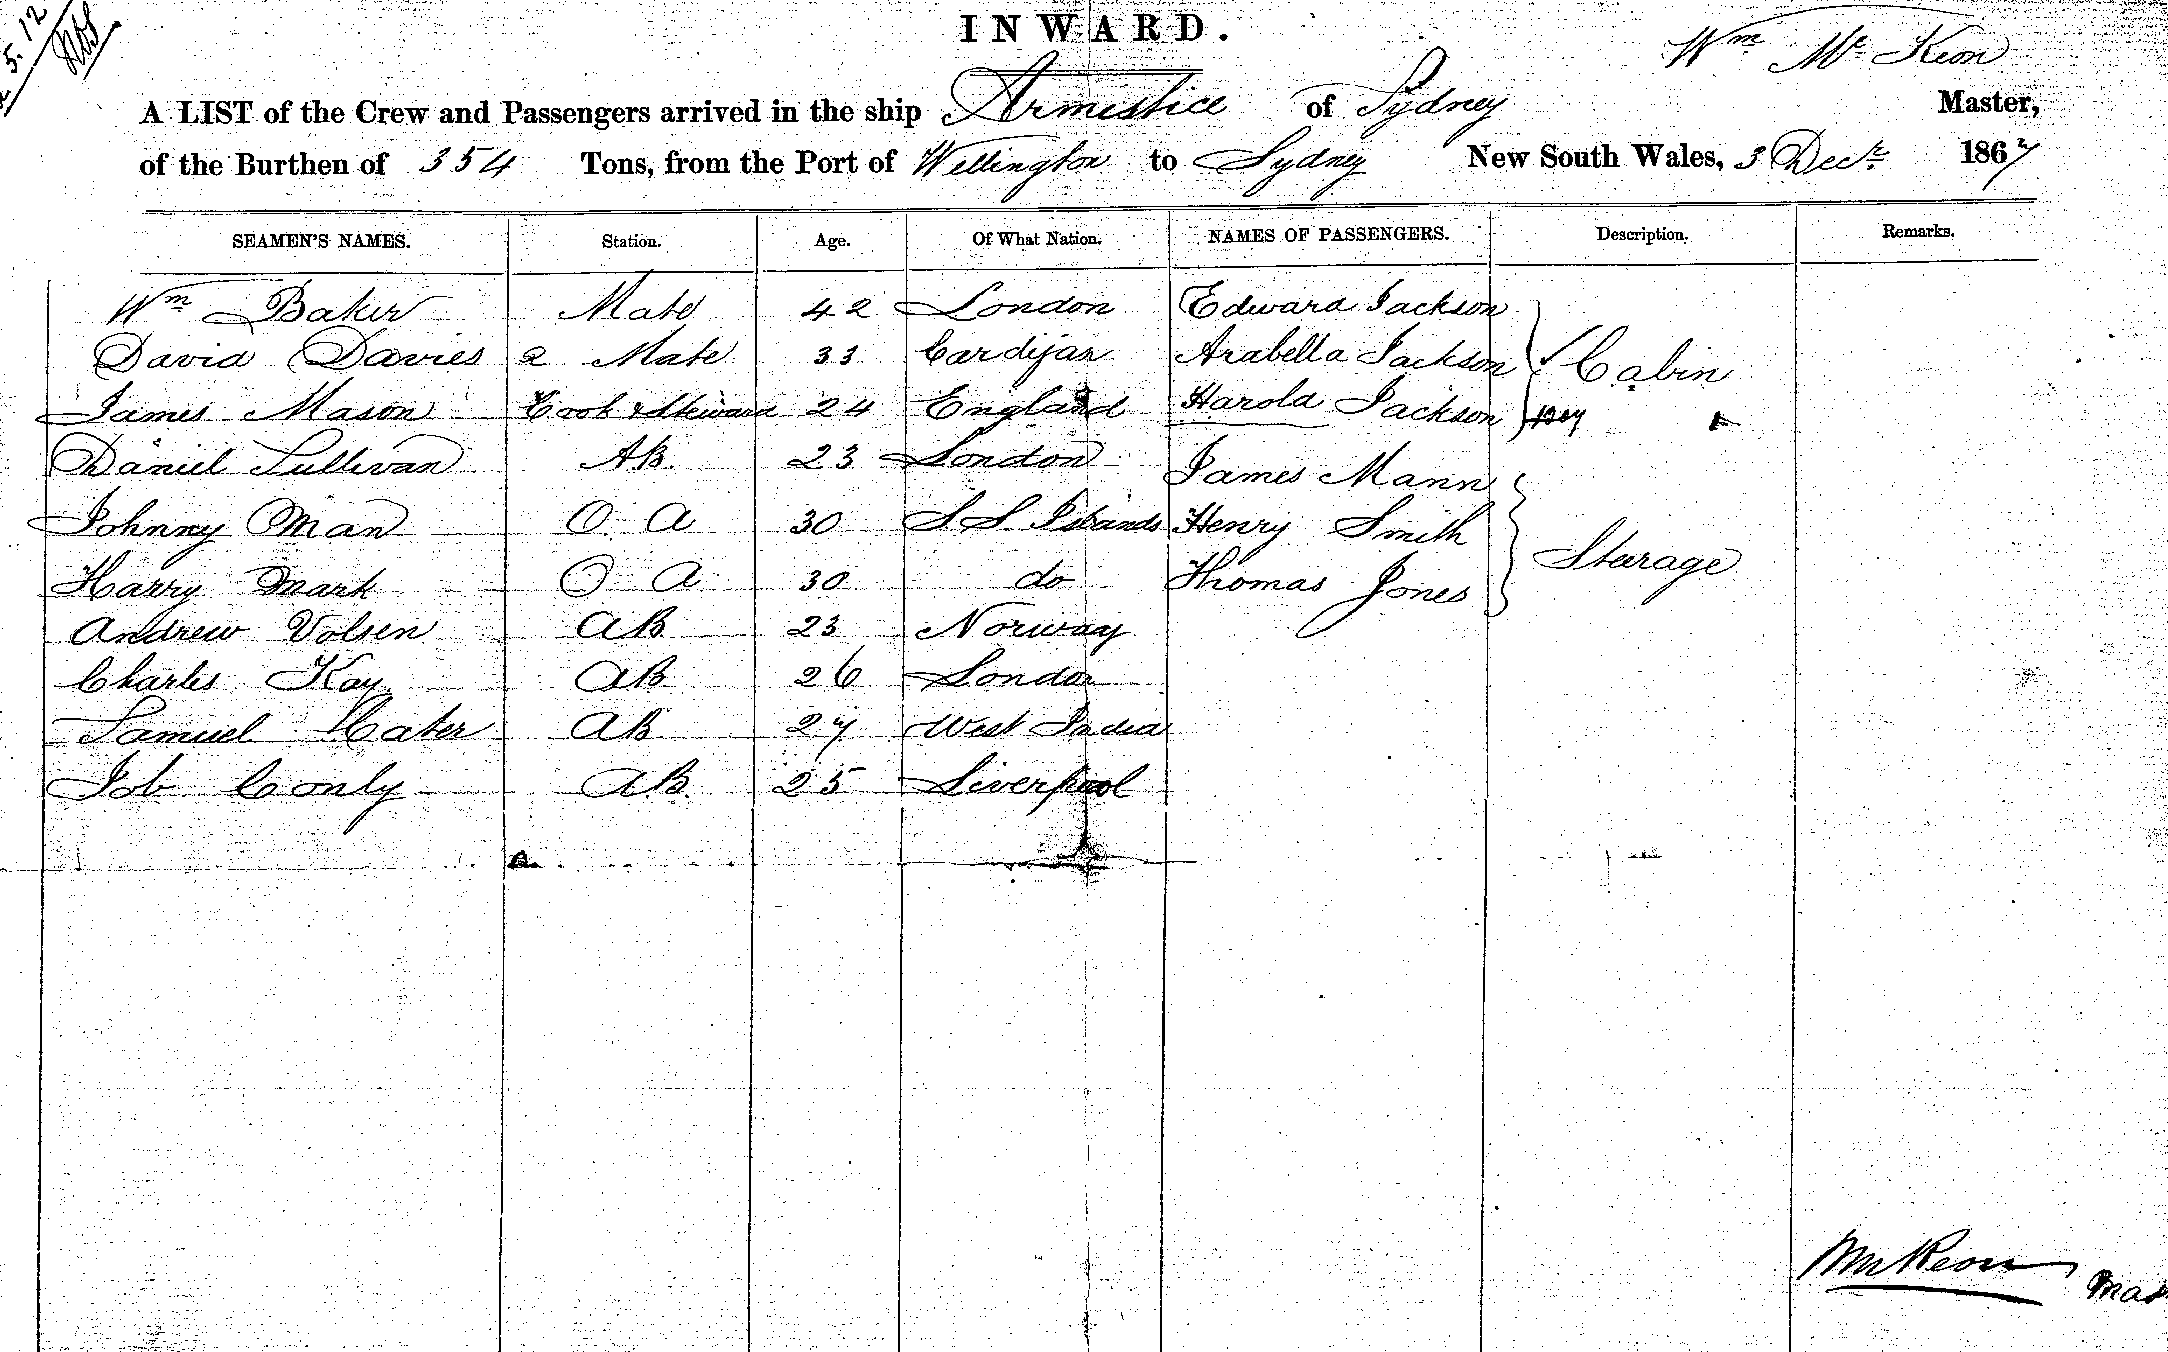 5. 12
INWARD.
Wm Mc Keon
A LIST of the Crew and Passengers arrived in the ship Armistice of Sydney Master,
of the Burthen of 354 Tons, from the Port of Wellington to Sydney New South Wales, 3 Decr 1867
SEAMEN'S NAMES. Station. Age. Of What Nation. NAMES OF PASSENGERS. Description. Remarks.
Wm Baker Mate 42 London Edward Jackson
David Davies 2 Mate 33 Cardijan Arabella Jackson Cabin
James Mason Cook & Steward 24 England Harold Jackson
Daniel Sullivan AB. 23 London James Mann
Johnny Man O A 30 S S Islands Henry Smith
Harry Mark O A 30 do Thomas Jones Starage
Andrew Volsen AB 23 Norway
Charles Kay AB 26 London
Samuel Cater AB 27 West India
Job Conly AB. 25 Liverpool
Wm Keon